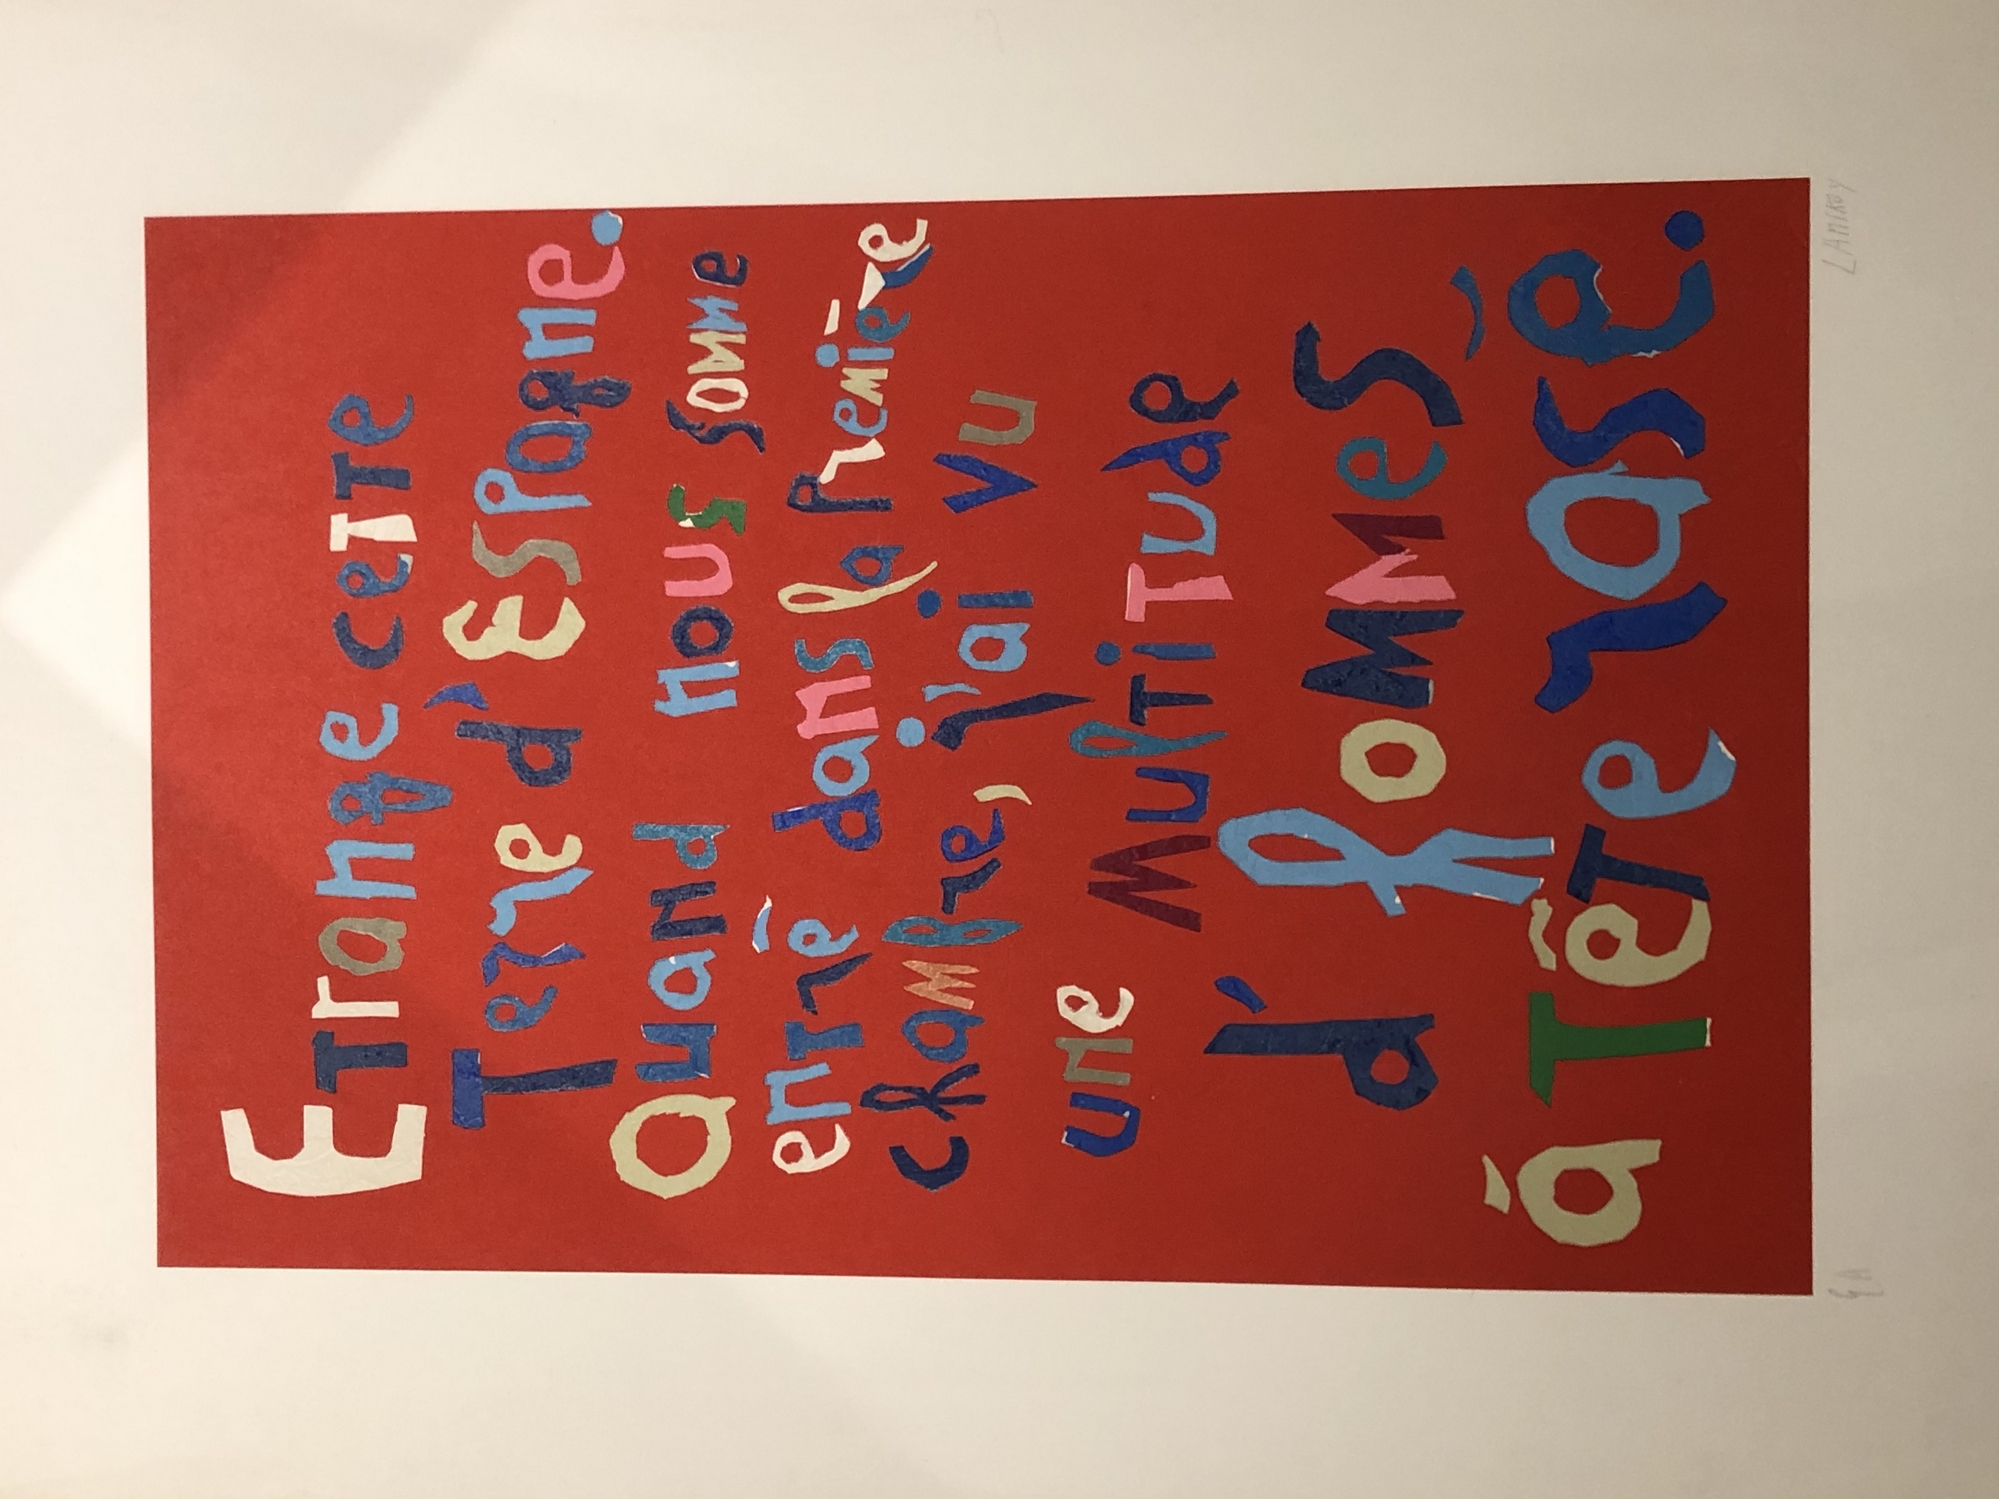 Etrange cette
Terre d'Espagne.
Quand nous somme
entré dans la Première
chambre, j'ai vu
une Multitude
d'hommes,
à Tête rase.
EA LANSKOY